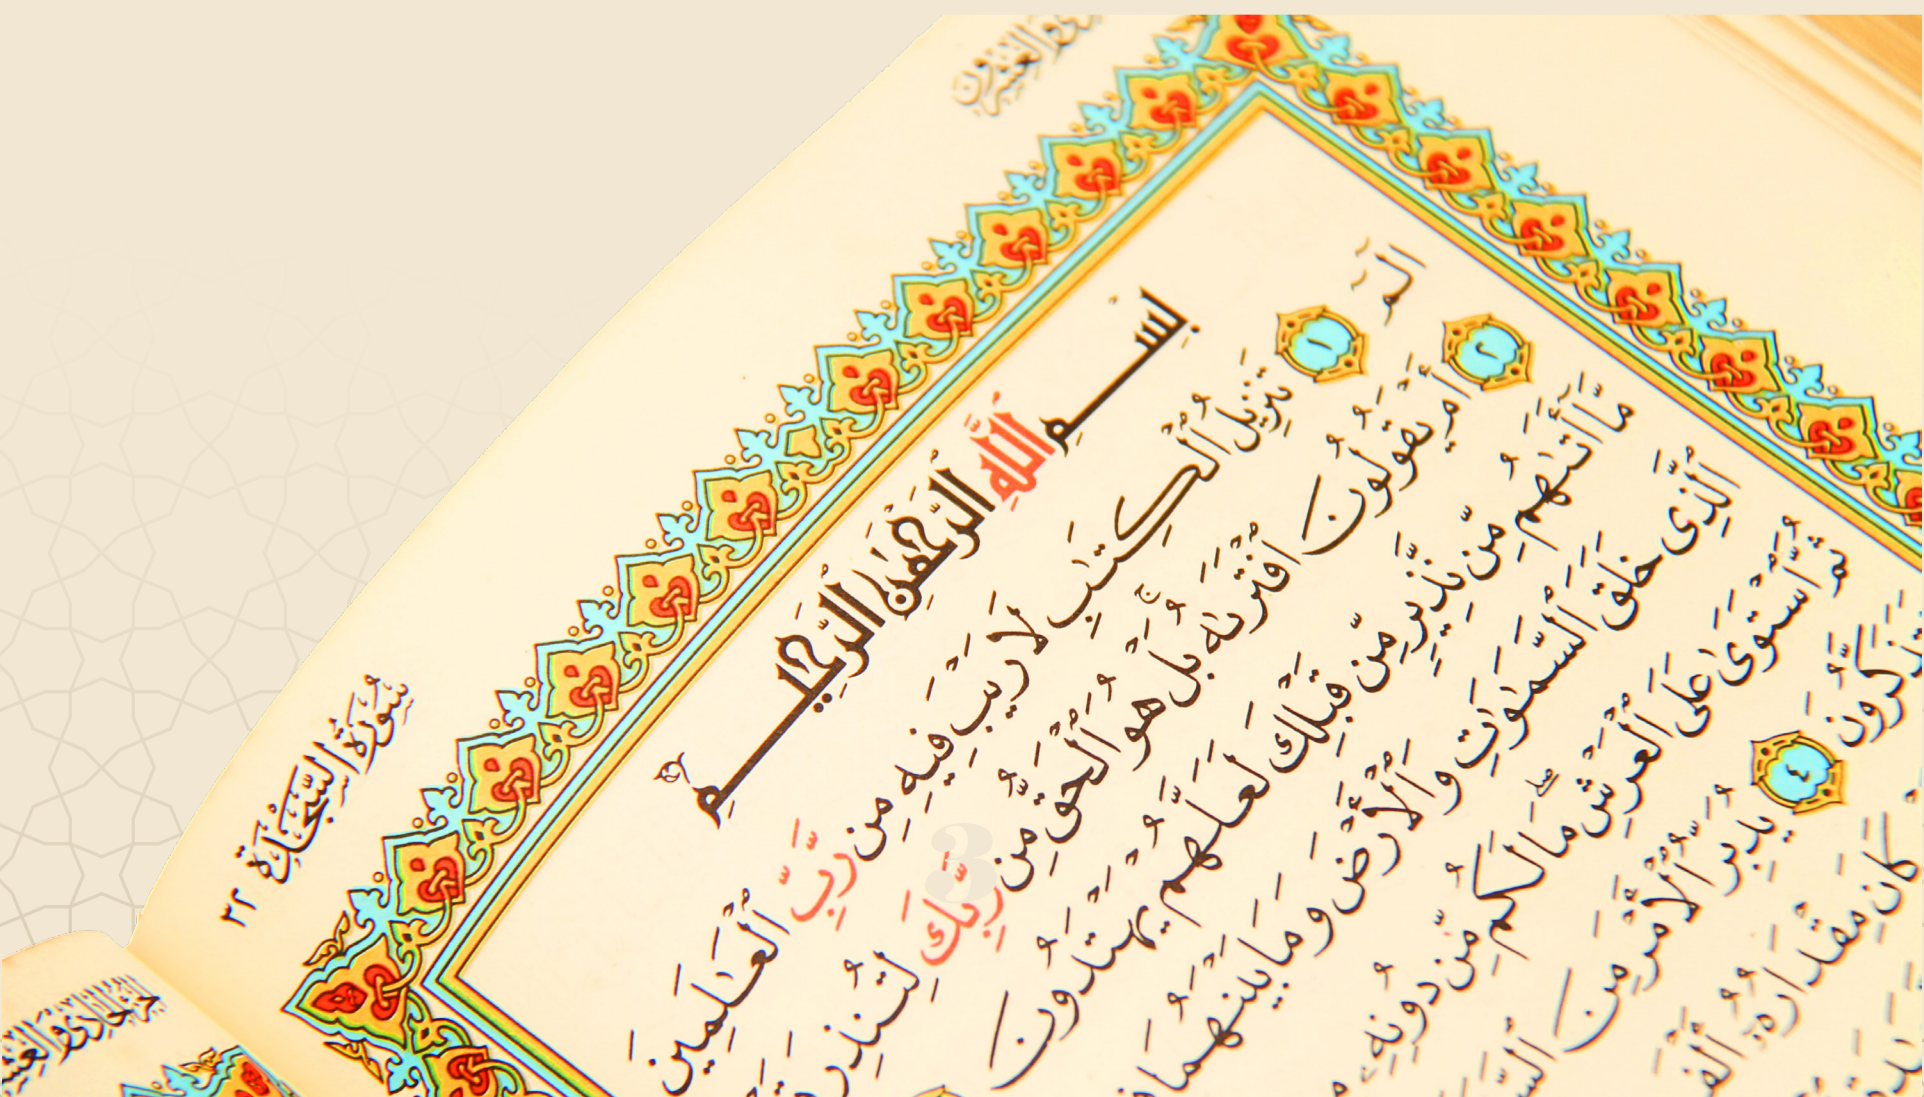 والعشرون
سُورَةُ السَّجْدَةِ ٣٢
بِسْمِ اللَّهِ الرَّحْمَٰنِ الرَّحِيمِ
الٓمٓ ١ تَنزِيلُ ٱلْكِتَٰبِ لَا رَيْبَ فِيهِ مِن رَّبِّ ٱلْعَٰلَمِينَ
٢ أَمْ يَقُولُونَ ٱفْتَرَىٰهُ بَلْ هُوَ ٱلْحَقُّ مِن رَّبِّكَ لِتُنذِرَ
مَّآ أَتَىٰهُم مِّن نَّذِيرٍ مِّن قَبْلِكَ لَعَلَّهُمْ يَهْتَدُونَ
ٱلَّذِى خَلَقَ ٱلسَّمَٰوَٰتِ وَٱلْأَرْضَ وَمَا بَيْنَهُمَا
ثُمَّ ٱسْتَوَىٰ عَلَى ٱلْعَرْشِ ۖ مَا لَكُم مِّن دُونِهِۦ
تَتَذَكَّرُونَ ٤ يُدَبِّرُ ٱلْأَمْرَ مِنَ
كَانَ مِقْدَارُهُۥٓ أَلْفَ
3